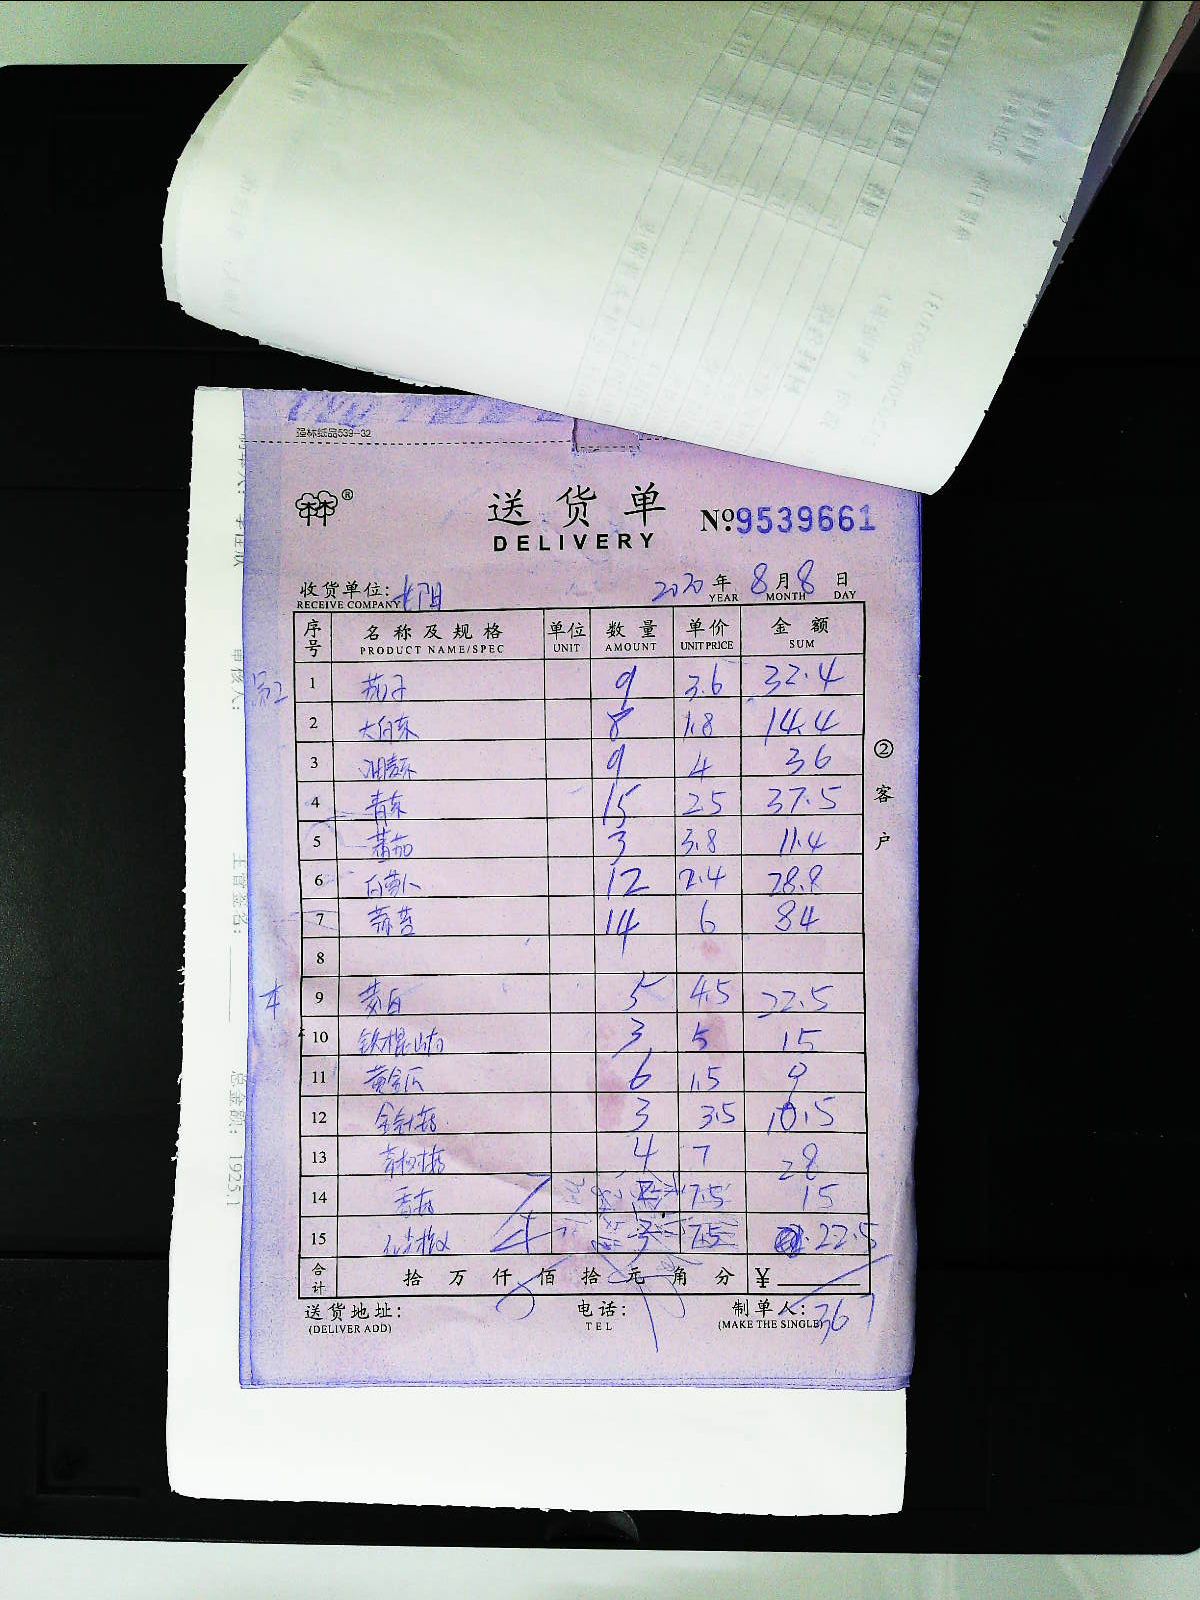 强标纸品539-32
送货单 №9539661
DELIVERY
收货单位: 2020年 8月8日
RECEIVE COMPANY YEAR MONTH DAY
序号 名称及规格 单位 数量 单价 金额
PRODUCT NAME/SPEC UNIT AMOUNT UNIT PRICE SUM
1 茄子 9 3.6 32.4
2 大白菜 8 1.8 14.4
3 油麦菜 9 4 36
4 青菜 15 2.5 37.5
5 蕃茄 3 3.8 11.4
6 白萝卜 12 2.4 28.8
7 蒜苔 14 6 84
8
9 茭白 5 4.5 22.5
10 铁棍山药 3 5 15
11 黄金瓜 6 1.5 9
12 金针菇 3 3.5 10.5
13 4 7 28
14 香菇 2 7.5 15
15 3 7.5 22.5
合计 拾万仟佰拾元角分 ¥
送货地址: 电话: 制单人: 367
(DELIVER ADD) TEL (MAKE THE SINGLE)
②客户
审核人:
主管签名:
总金额: 1925.1